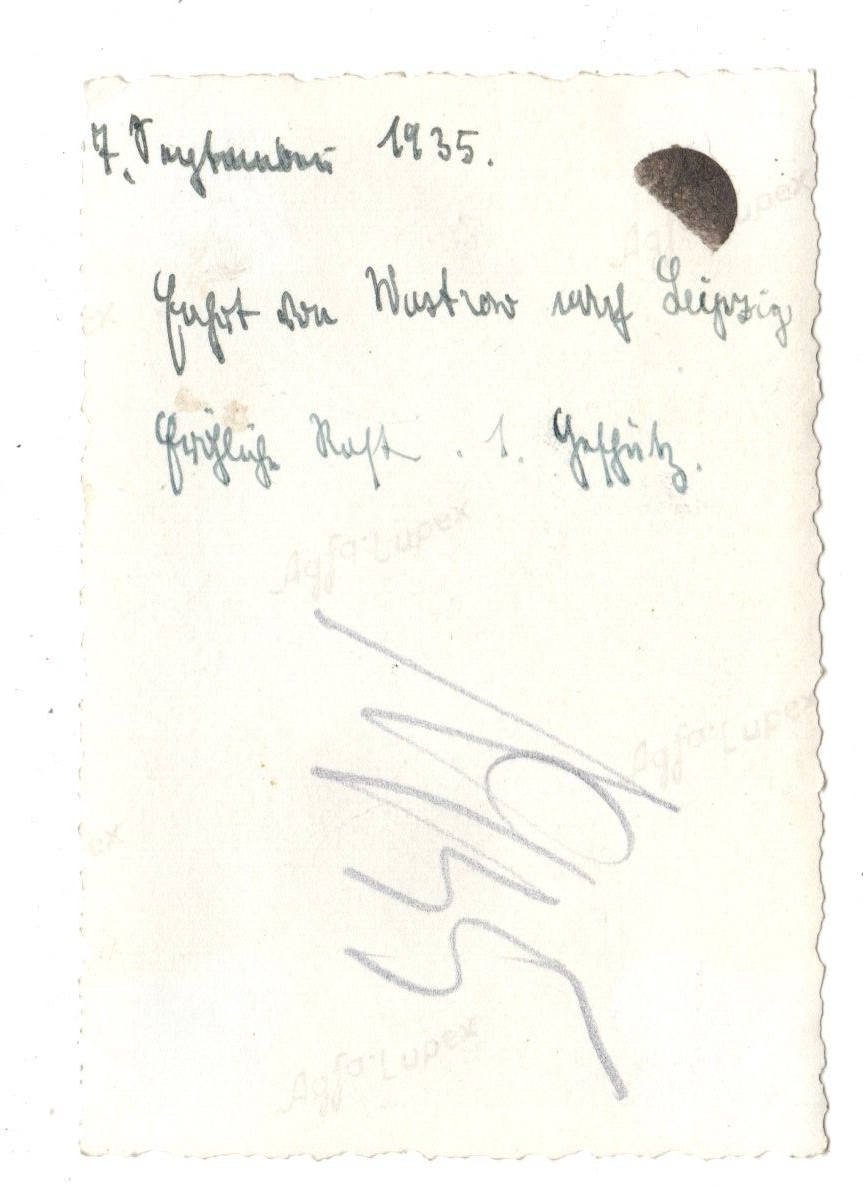 7. September 1935.
Agfa-Lupex
Fahrt von Wustrow nach Leipzig
Fröhliche Rast. 1. Geschütz.
Agfa-Lupex
Agfa-Lupex
Agfa-Lupex